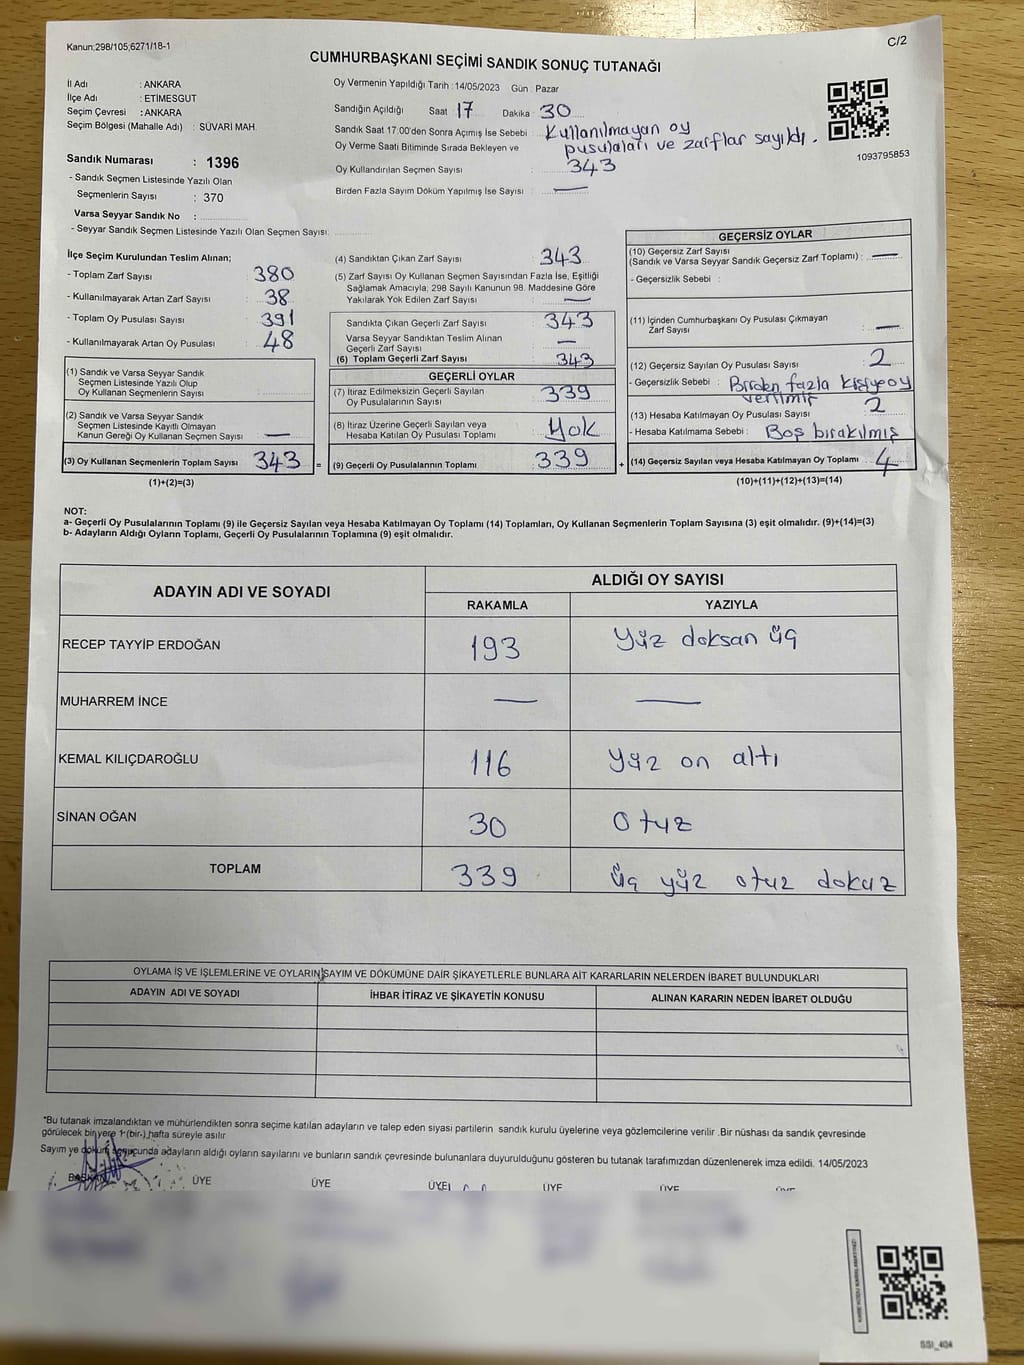 Kanun;298/105;6271/18-1
C/2
CUMHURBAŞKANI SEÇİMİ SANDIK SONUÇ TUTANAĞI
İl Adı : ANKARA
İlçe Adı : ETİMESGUT
Seçim Çevresi : ANKARA
Seçim Bölgesi (Mahalle Adı) : SÜVARİ MAH.
Sandık Numarası : 1396
- Sandık Seçmen Listesinde Yazılı Olan
Seçmenlerin Sayısı : 370
Varsa Seyyar Sandık No :
- Seyyar Sandık Seçmen Listesinde Yazılı Olan Seçmen Sayısı:
Oy Vermenin Yapıldığı Tarih : 14/05/2023 Gün : Pazar
Sandığın Açıldığı Saat 17 Dakika : 30
Sandık Saat 17:00'den Sonra Açımış İse Sebebi : Kullanılmayan oy pusulaları ve zarflar sayıldı.
Oy Verme Saati Bitiminde Sırada Bekleyen ve
Oy Kullandırılan Seçmen Sayısı : 343
Birden Fazla Sayım Döküm Yapılmış İse Sayısı : —
1093795853
İlçe Seçim Kurulundan Teslim Alınan;
- Toplam Zarf Sayısı : 380
- Kullanılmayarak Artan Zarf Sayısı : 38
- Toplam Oy Pusulası Sayısı : 391
- Kullanılmayarak Artan Oy Pusulası : 48
(1) Sandık ve Varsa Seyyar Sandık
Seçmen Listesinde Yazılı Olup
Oy Kullanan Seçmenlerin Sayısı :
(2) Sandık ve Varsa Seyyar Sandık
Seçmen Listesinde Kayıtlı Olmayan
Kanun Gereği Oy Kullanan Seçmen Sayısı : —
(3) Oy Kullanan Seçmenlerin Toplam Sayısı 343 =
(1)+(2)=(3)
(4) Sandıktan Çıkan Zarf Sayısı : 343
(5) Zarf Sayısı Oy Kullanan Seçmen Sayısından Fazla İse, Eşitliği
Sağlamak Amacıyla; 298 Sayılı Kanunun 98. Maddesine Göre
Yakılarak Yok Edilen Zarf Sayısı : —
Sandıkta Çıkan Geçerli Zarf Sayısı : 343
Varsa Seyyar Sandıktan Teslim Alınan
Geçerli Zarf Sayısı : —
(6) Toplam Geçerli Zarf Sayısı : 343
GEÇERLİ OYLAR
(7) İtiraz Edilmeksizin Geçerli Sayılan
Oy Pusulalarının Sayısı : 339
(8) İtiraz Üzerine Geçerli Sayılan veya
Hesaba Katılan Oy Pusulası Toplamı : Yok
(9) Geçerli Oy Pusulalarının Toplamı : 339 +
GEÇERSİZ OYLAR
(10) Geçersiz Zarf Sayısı
(Sandık ve Varsa Seyyar Sandık Geçersiz Zarf Toplamı) : —
- Geçersizlik Sebebi :
(11) İçinden Cumhurbaşkanı Oy Pusulası Çıkmayan
Zarf Sayısı : —
(12) Geçersiz Sayılan Oy Pusulası Sayısı : 2
- Geçersizlik Sebebi : Birden fazla kişiye oy verilmiş
(13) Hesaba Katılmayan Oy Pusulası Sayısı : 2
- Hesaba Katılmama Sebebi : Boş bırakılmış
(14) Geçersiz Sayılan veya Hesaba Katılmayan Oy Toplamı : 4
(10)+(11)+(12)+(13)=(14)
NOT:
a- Geçerli Oy Pusulalarının Toplamı (9) ile Geçersiz Sayılan veya Hesaba Katılmayan Oy Toplamı (14) Toplamları, Oy Kullanan Seçmenlerin Toplam Sayısına (3) eşit olmalıdır. (9)+(14)=(3)
b- Adayların Aldığı Oyların Toplamı, Geçerli Oy Pusulalarının Toplamına (9) eşit olmalıdır.
ADAYIN ADI VE SOYADI
ALDIĞI OY SAYISI
RAKAMLA YAZIYLA
RECEP TAYYİP ERDOĞAN 193 Yüz doksan üç
MUHARREM İNCE — —
KEMAL KILIÇDAROĞLU 116 Yüz on altı
SİNAN OĞAN 30 Otuz
TOPLAM 339 üç yüz otuz dokuz
OYLAMA İŞ VE İŞLEMLERİNE VE OYLARIN SAYIM VE DÖKÜMÜNE DAİR ŞİKAYETLERLE BUNLARA AİT KARARLARIN NELERDEN İBARET BULUNDUKLARI
ADAYIN ADI VE SOYADI İHBAR İTİRAZ VE ŞİKAYETİN KONUSU ALINAN KARARIN NEDEN İBARET OLDUĞU
*Bu tutanak imzalandıktan ve mühürlendikten sonra seçime katılan adayların ve talep eden siyasi partilerin sandık kurulu üyelerine veya gözlemcilerine verilir .Bir nüshası da sandık çevresinde
görülecek bir yere 1-(bir-) hafta süreyle asılır
Sayım ve döküm sonucunda adayların aldığı oyların sayılarını ve bunların sandık çevresinde bulunanlara duyurulduğunu gösteren bu tutanak tarafımızdan düzenlenerek imza edildi. 14/05/2023
BAŞKAN ÜYE ÜYE ÜYE ÜYE ÜYE ÜYE
SSI_404